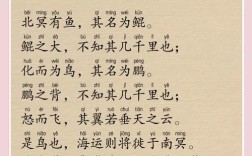 běi míng yǒu yú　qí míng wéi kūn
北冥有鱼，其名为鲲。
kūn zhī dà　bù zhī qí jǐ qiān lǐ yě
鲲之大，不知其几千里也；
huà ér wéi niǎo　qí míng wéi péng
化而为鸟，其名为鹏。
péng zhī bèi　bù zhī qí jǐ qiān lǐ yě
鹏之背，不知其几千里也；
nù ér fēi　qí yì ruò chuí tiān zhī yún
怒而飞，其翼若垂天之云。
shì niǎo yě　hǎi yùn zé jiāng xǐ yú nán míng
是鸟也，海运则将徙于南冥。